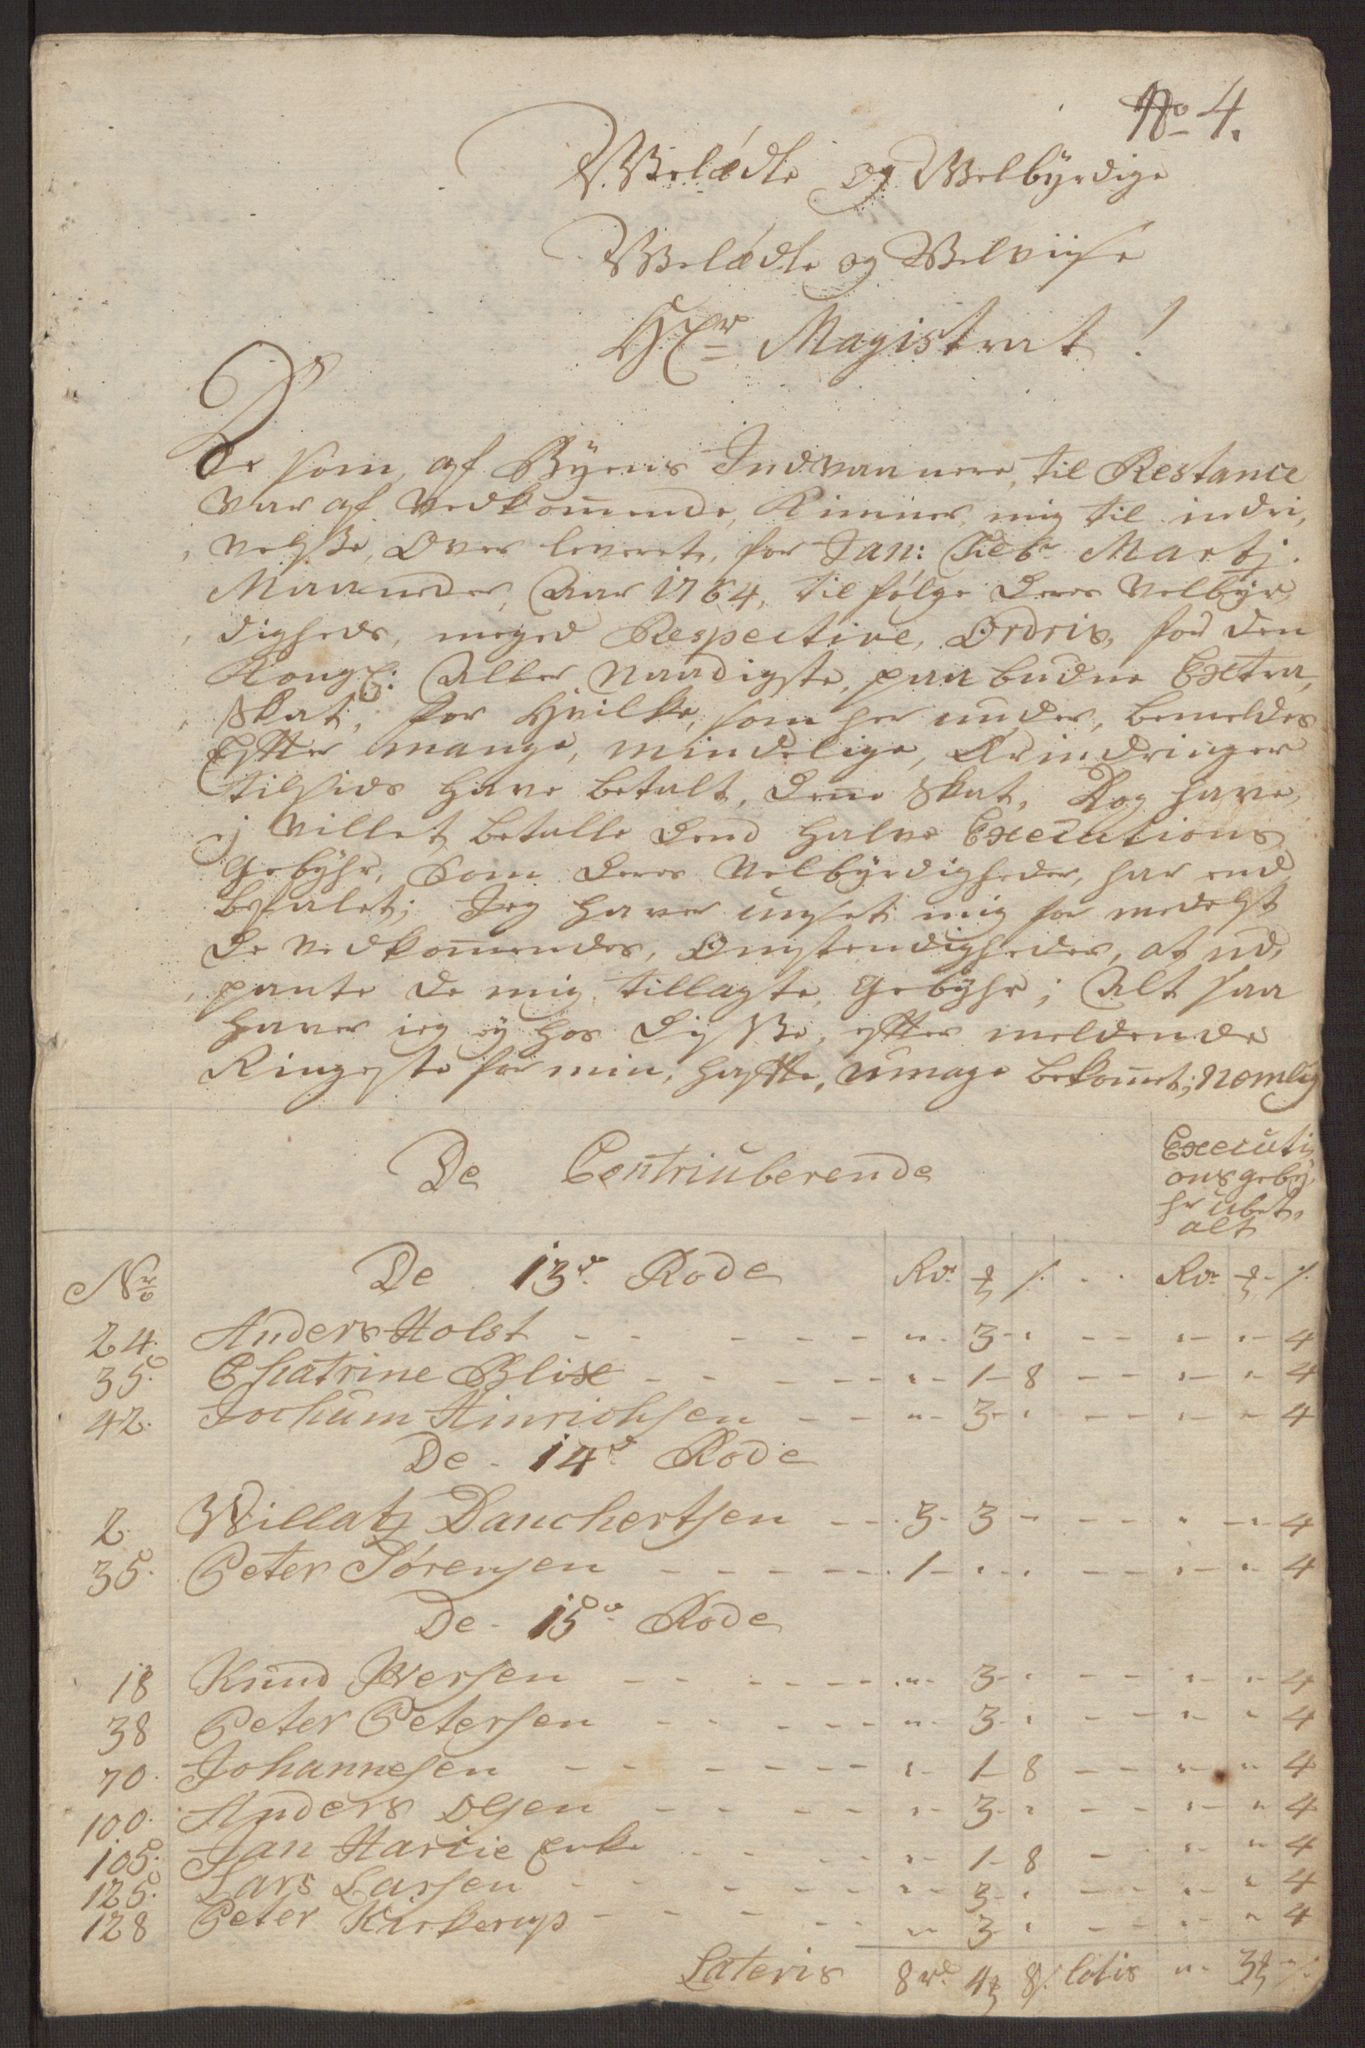 No 4.
Velædle og Velbyrdige
Velædle og Velviise
Hr. Magistrat!
De som, af Byens Indvaanere, til Restance
var af Vedkom̄ende, Kiemner, mig til inddri,
velsse, Over leveret, for Jan: Feb: Martj.
Maaneder, Aar 1764, til følge Deres Velbyr,
digheds, meged Respective, Ordris, for den
Kongl: Aller Naadigste, paabudne Extra,
Skat, for Hvilke, som her under, bemeldes
Efter mange, mindelige, Erindringer
tilsids have betalt, dene Skat, Dog have,
ej villet betalle dend halve Executions
Gebyhr, Som Deres Velbyrdigheder, har end
befalet; Jeg haver undset mig for medelst
de vedkom̄endes, Omstendigheder, at ud,
pante de mig, tillagte, Gebyhr; Alt saa
haver ieg ej hos disse, efter meldende
Ringeste for min, hafte, umage bekom̄et; Nemlig
De Contriuberende
Executi,
onsgeby,
hr ubet,
alt
Nr. De 13de Rode Rdr. ₰ s. Rdr. ₰ s.
24. Anders Holst - - " - 3 - " - - " - " - 4
35. Chatrine Blixe - - " - 1 - 8 - - " - " - 4
42. Jochum Hinrichsen - - " - 3 - " - - " - " - 4
De - 14de Rode
2. Willatz Danchertsen - - 3 - 3 - - - " - " - 4
35. Peter Sørensen - - 1 - " - " - - " - " - 4
De - 15de Rode
18 Knud Iversen - - " - 3 - " - - " - " - 4
38 Peter Petersen - - " - 3 - " - - " - " - 4
70. Johannesen - - " - 1 - 8 - - " - " - 4
100. Anders Olsen - - " - 3 - " - - " - " - 4
105. Jan Harcie Enke - - " - 1 - 8 - " - " - 4
125. Lars Larsen - - " - 3 - " - - " - " - 4
128 Peter Kirkerup - - " - 3 - " - - " - " - 4
Lateris 8 rd. 4 ₰ 8 s. latis " - 3 ₰ - s.